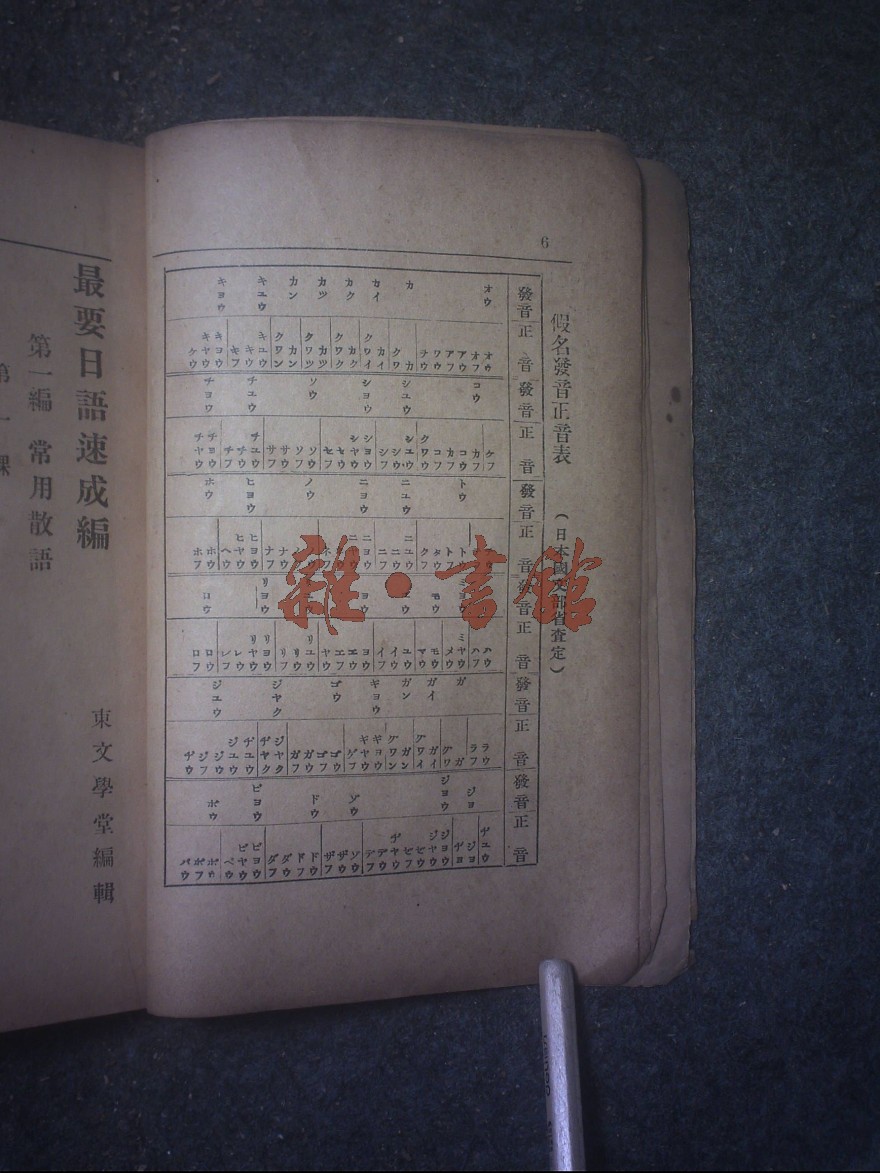 6
假名發音正音表
(日本國文部省査定)
發音 正音 發音 正音 發音 正音 發音 正音 發音 正音 發音 正音
オウ カ カイ カク カツ カン キユウ キヨウ
オウ オフ アウ アフ ワウ カ クワ カイ クワイ カク クワク カツ クワツ カン クワン キユウ キウ キフ キヨウ キヤウ ケウ
コウ シユウ シヨウ ソウ チユウ チヨウ
ケフ コウ コフ クワウ シユウ シウ シフ シヨウ シヤウ セウ セフ ソウ ソフ サウ サフ チユウ チウ チフ チヨウ チヤウ
トウ ニユウ ニヨウ ノウ ヒヨウ ホウ
トウ トフ タウ ニユウ ニウ ニフ ニヨウ ニヤウ ナウ ナフ ヒヨウ ヒヤウ ヘウ ホウ ホフ
モウ ヨウ リヨウ ロウ
ハウ ハフ ミヤウ メウ モウ マウ ユウ イウ イフ ヨウ エウ エフ ヤウ リユウ リウ リフ リヨウ リヤウ レウ レフ ロウ ロフ
ガ ガイ ガン ギヨウ ゴウ ジヤク ジユウ
ラウ ラフ ガ グワ ガイ グワイ ガン グワン ギヨウ ギヤウ ゲフ ゴウ ゴフ ガウ ガフ ジヤク ヂヤク ヂユウ ジユウ ジウ ジフ ヂウ
ジヨ ジヨウ ゾウ ドウ ビヨウ ボウ
ヂユウ ジヨ ヂヨ ジヨウ ジヤウ ヂヤウ デウ デフ ゾウ ザウ ザフ ドウ ドフ ダウ ダフ ビヨウ ビヤウ ベウ ボウ ボフ バウ
最要日語速成編
東文學堂編輯
第一編 常用散語
第一課
雜·書館